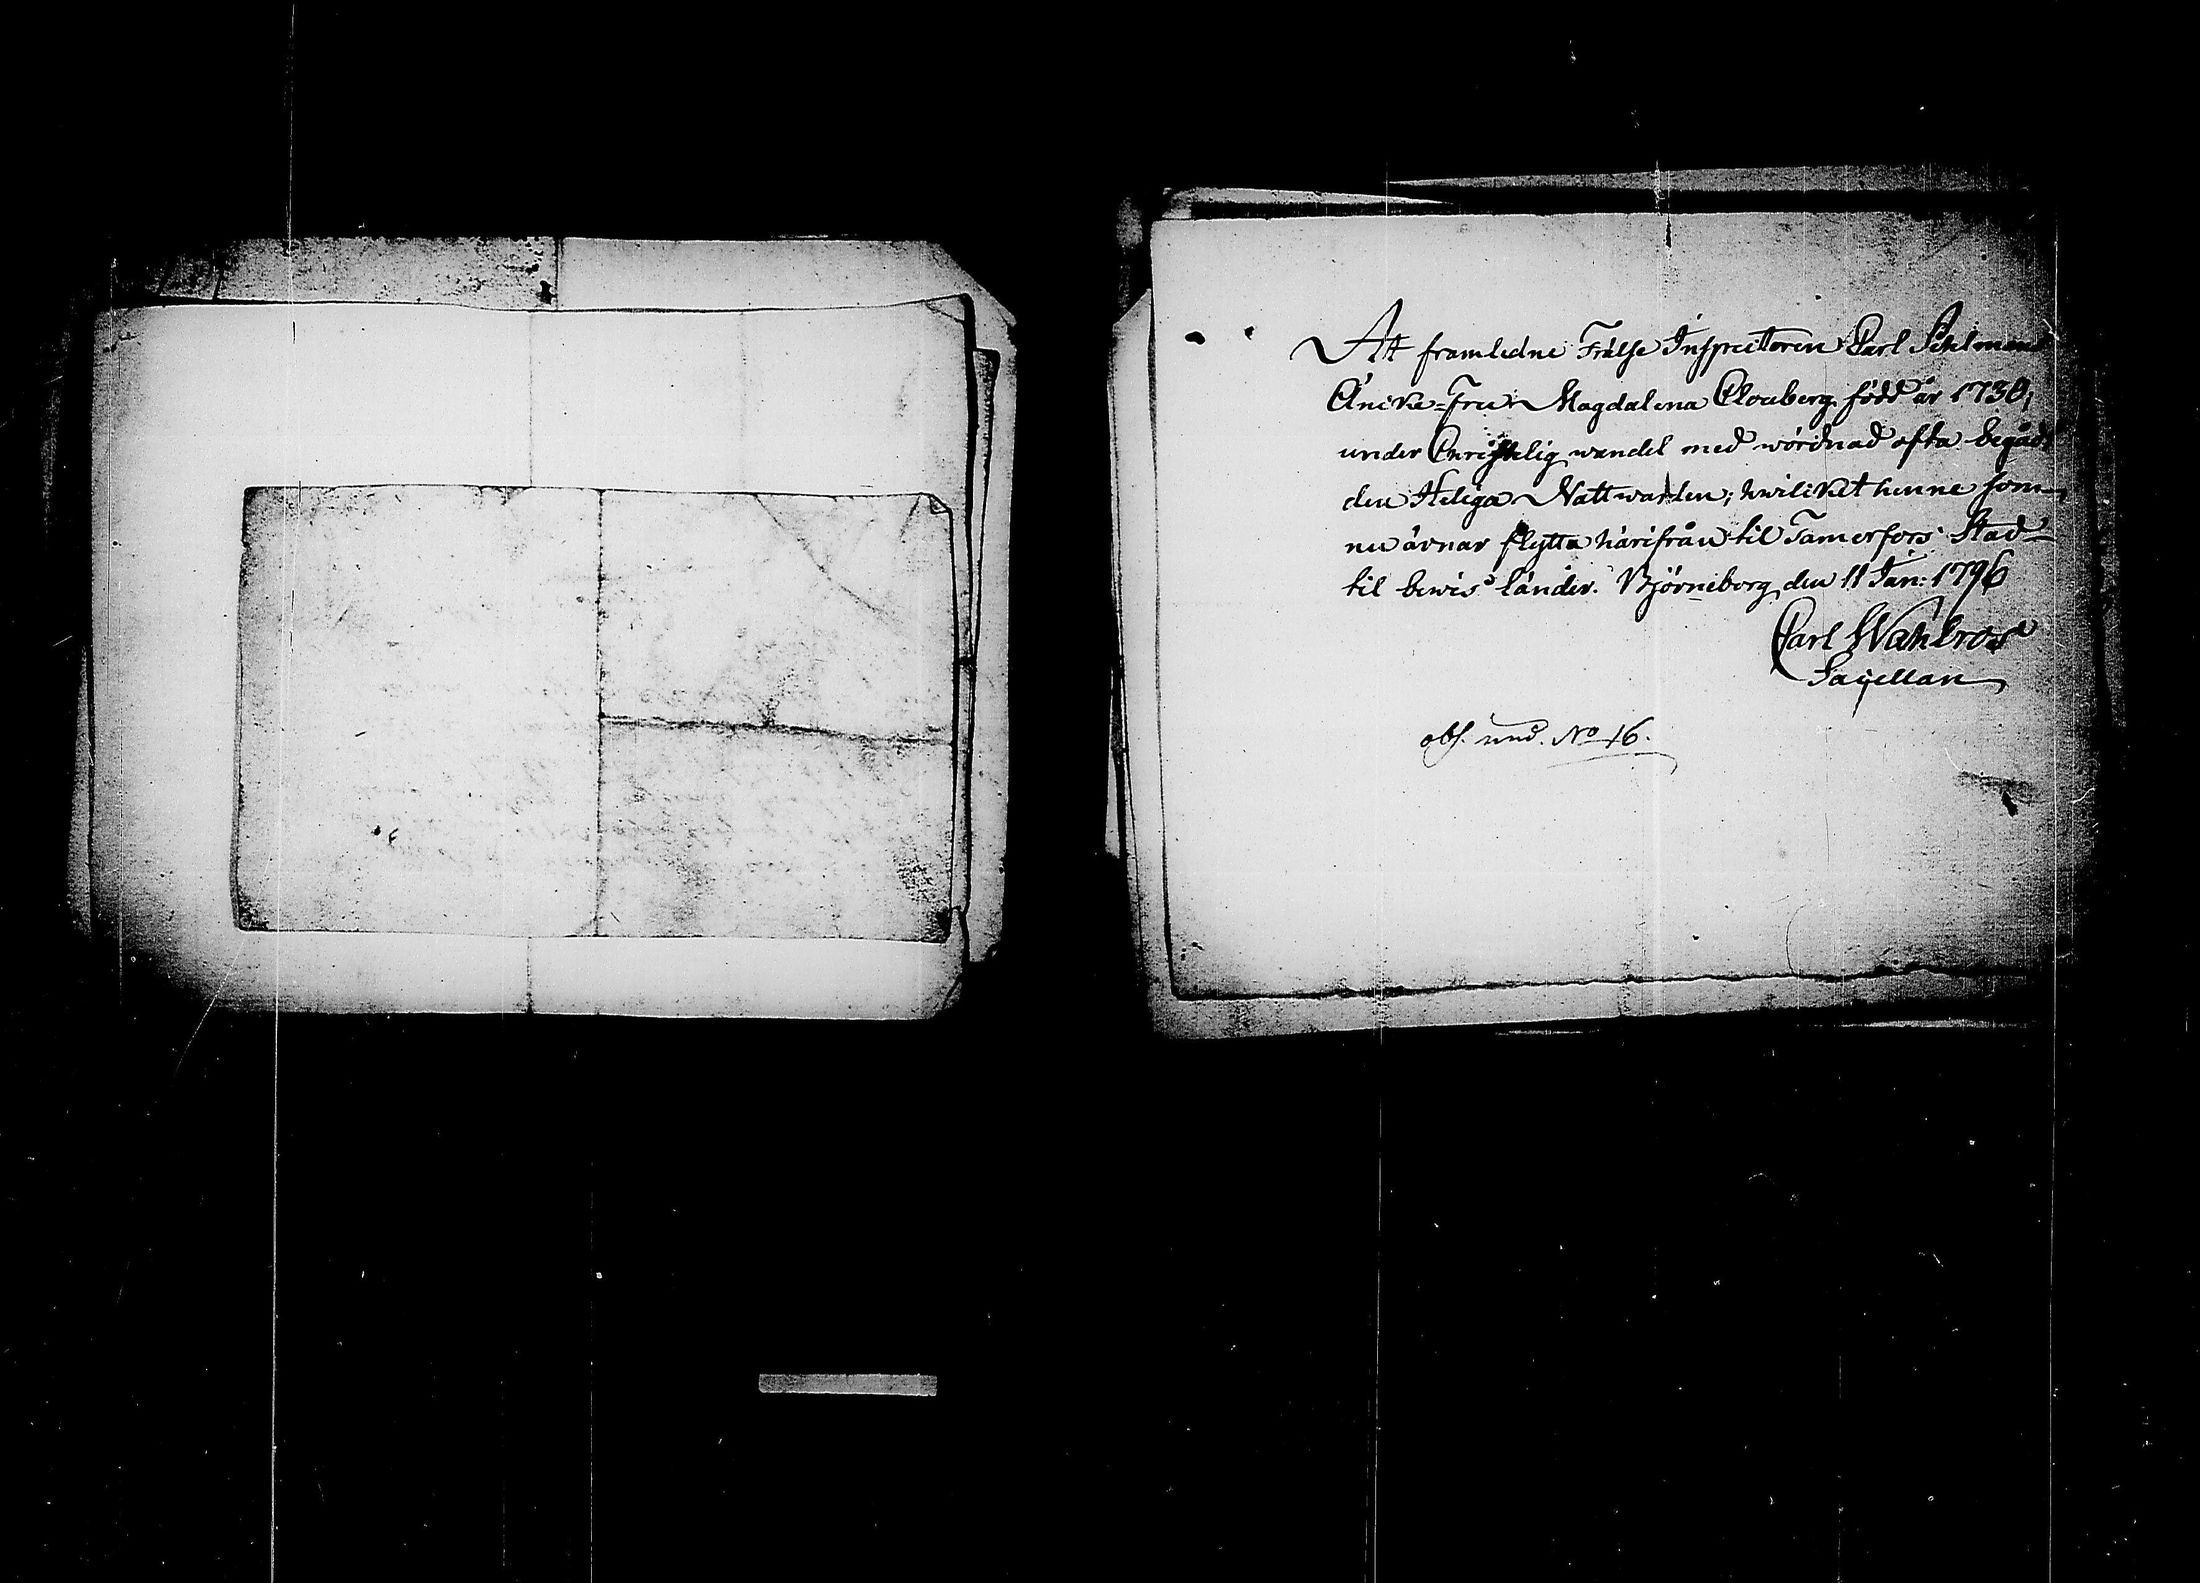 Att framledne Frälse Inspectoren Carl Sihlmans
Äncke-Fru Magdalena Clouberg född år 1730,
under Christelig wandel med wördnad ofta begådt
den Heliga Nattwarden; hwilcket henne som
nu ärnar flytta härifrån til Tamerfors Stad
til bewis länder. Björneborg den 11 Jan: 1796
Carl Wahlroos
Sacellan
obs. und. No 16.